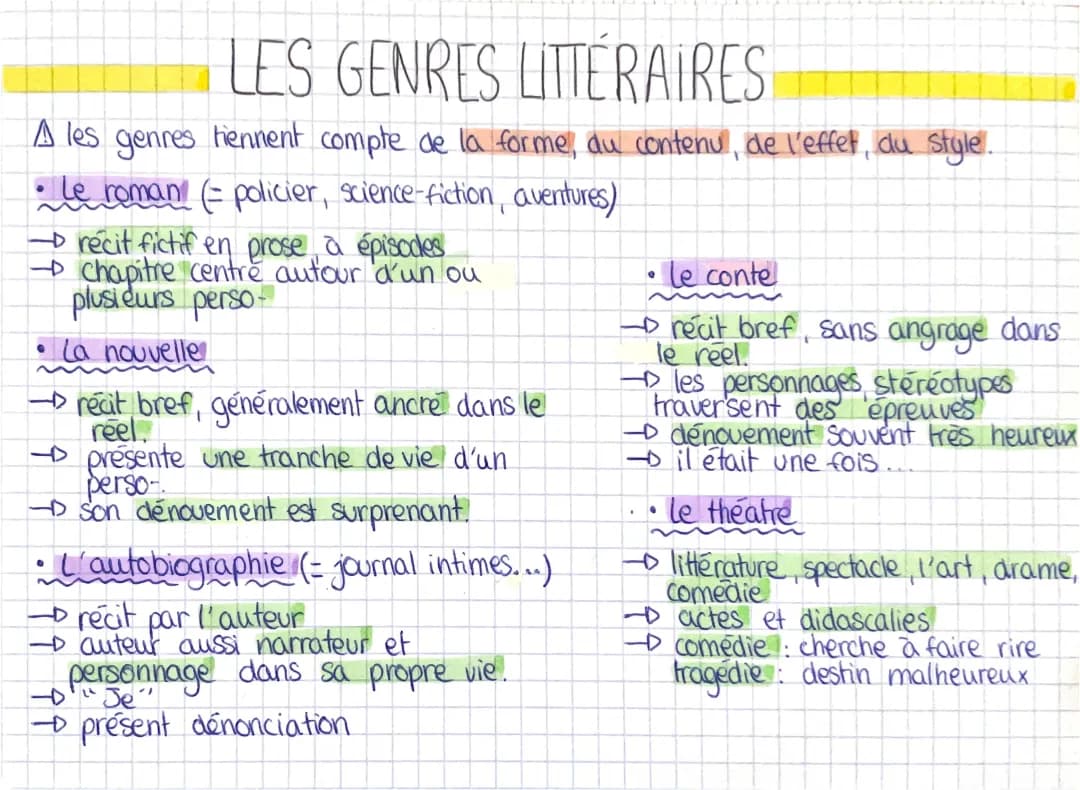 LES GENRES LITTÉRAIRES
⚠ les genres tiennent compte de la forme, du contenu, de l'effet, du style.
• Le roman (= policier, science-fiction, aventures)
→ récit fictif en prose, à épisodes
→ chapitre centré autour d'un ou
plusieurs perso-
• La nouvelle
→ récit bref, généralement ancré dans le
réel.
→ présente une tranche de vie d'un
perso-.
→ son dénouement est surprenant.
• L'autobiographie (= journal intimes...)
→ récit par l'auteur
→ auteur aussi narrateur et
personnage dans sa propre vie.
→ "Je"
→ présent dénonciation
• Le conte
→ récit bref, sans angrage dans
le réel.
→ les personnages, stéréotypes
traversent des épreuves
→ dénouement souvent très heureux
→ il était une fois...
• Le théatre
→ littérature, spectacle, l'art, drame,
comédie
→ actes et didascalies
→ comédie : cherche à faire rire
tragédie : destin malheureux